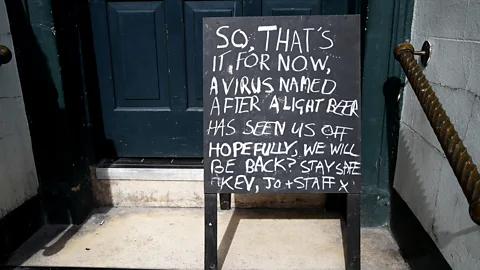 SO, THAT'S
IT, FOR NOW,
A VIRUS NAMED
AFTER A LIGHT BEER
HAS SEEN US OFF
HOPEFULLY, WE WILL
BE BACK? STAY SAFE
KEV, JO + STAFF X